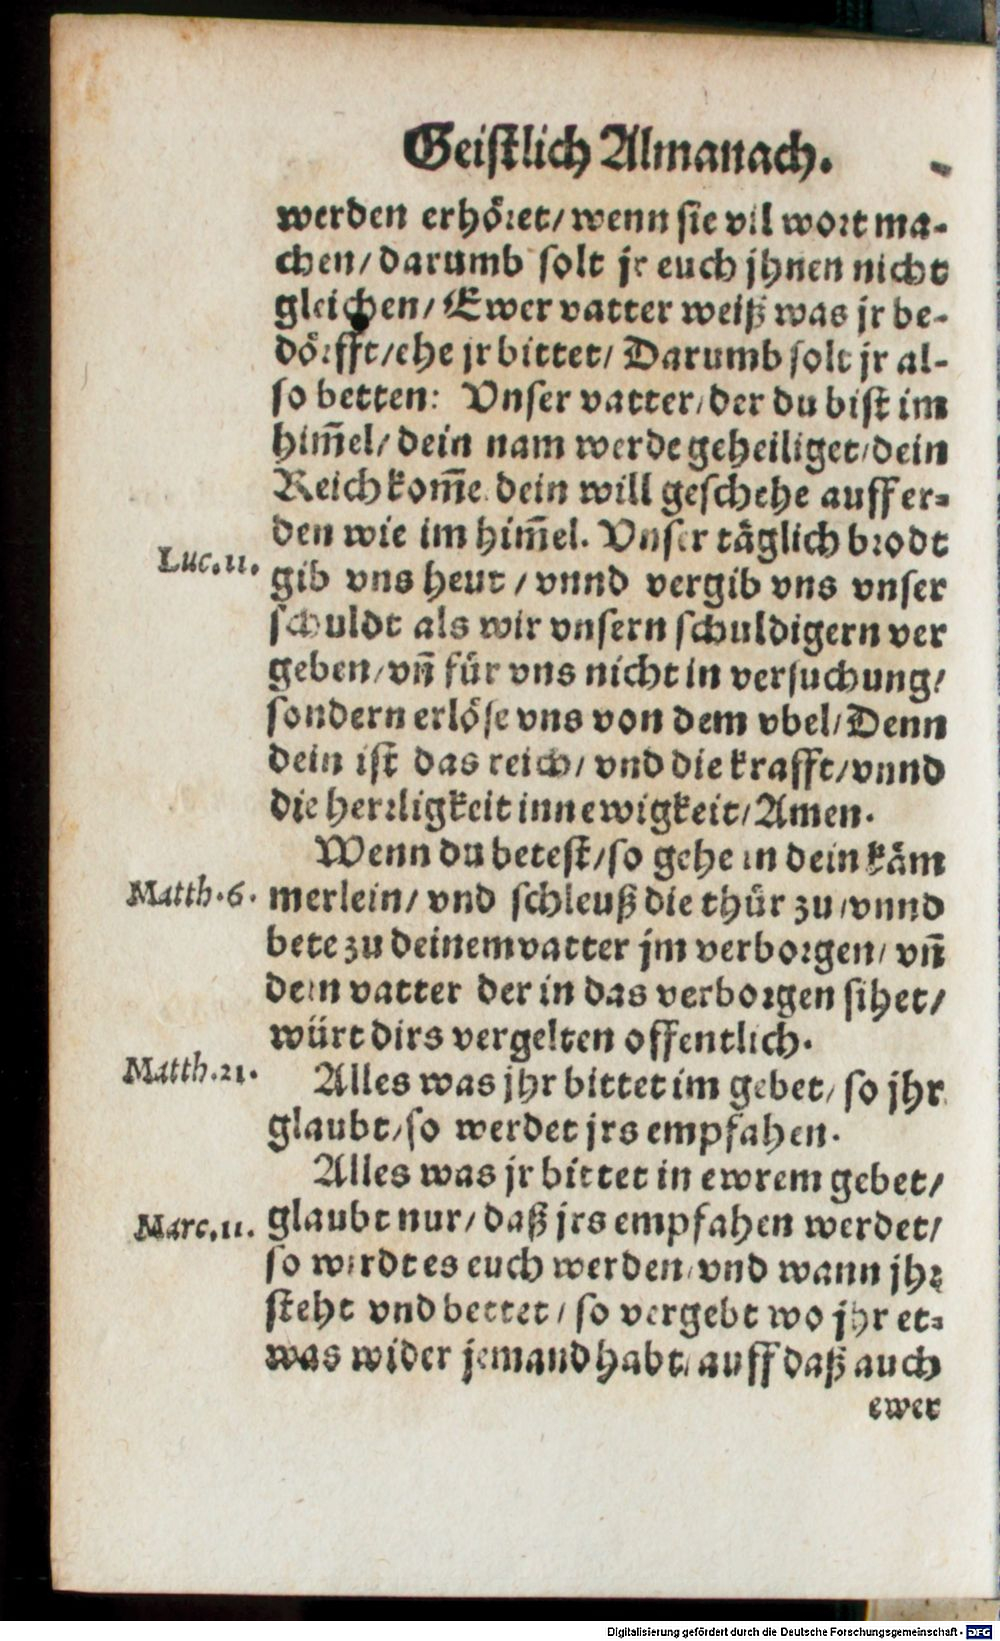 Geistlich Almanach.
werden erhöret/ wenn sie vil wort ma-
chen/ darumb solt jr euch jhnen nicht
gleichen/ Ewer vatter weiß was jr be-
dörfft/ ehe jr bittet/ Darumb solt jr al-
so betten: Vnser vatter/ der du bist im
him̃el/ dein nam werde geheiliget/ dein
Reich kom̃e. dein will geschehe auff er-
den wie im him̃el. Vnser täglich brodt
Luc. 11.
gib vns heut / vnnd vergib vns vnser
schuldt als wir vnsern schuldigern ver
geben/ vñ für vns nicht in versuchung/
sondern erlöse vns von dem vbel/ Denn
dein ist das reich/ vnd die krafft/ vnnd
die herrligkeit inn ewigkeit/ Amen.
Wenn du betest/ so gehe in dein käm
Matth. 6.
merlein/ vnd schleuß die thür zu/ vnnd
bete zu deinem vatter jm verborgen/ vñ
dein vatter der in das verborgen sihet/
würt dirs vergelten offentlich.
Matth. 21.
Alles was jhr bittet im gebet/ so jhr
glaubt/ so werdet jrs empfahen.
Alles was jr bittet in ewrem gebet/
Marc. 11.
glaubt nur/ daß jrs empfahen werdet/
so wirdt es euch werden/ vnd wann jhr
steht vnd bettet / so vergebt wo jhr et-
was wider jemand habt/ auff daß auch
ewer
Digitalisierung gefördert durch die Deutsche Forschungsgemeinschaft - DFG